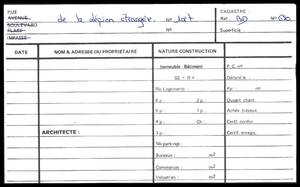 RUE
AVENUE
BOULEVARD
PLACE
IMPASSE
de la Légion étrangère. No
CADASTRE :
Réf. BD No
Superficie :
DATE NOM & ADRESSE DU PROPRIETAIRE NATURE CONSTRUCTION
Immeuble - Bâtiment P. C. no
SS + R + Délivré le :
No Logements : Par no
6 p 2 p. Ouvert. chant.
5 p 1 p. Achèv. travaux
4 p Ch Certif. confor.
3 p. Certif. enreg.
ARCHITECTE :
No parkings :
Bureaux : m2
Commerces : m2
Industries : m2